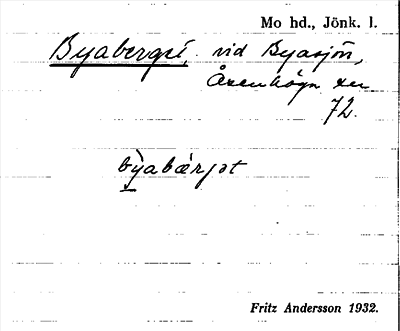 Mo hd., Jönk. l.
Byaberget, vid Byasjön,
Åxenhögn xer
72.
byabærjət
Fritz Andersson 1932.